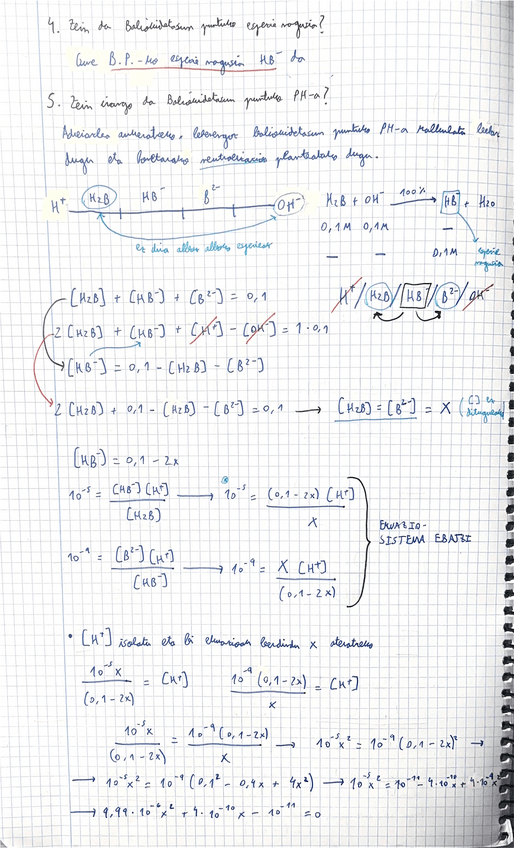 4. Zein da Baliokidetasun puntuko espezie nagusia?
Gure B.P.-ko espezie nagusia HB⁻ da
5. Zein izango da Baliokidetasun puntuko PH-a?
Adierazleak aukeratzeko, lehenengo baliokidetasun puntuko PH-a kalkulatu behar
dugu eta horretarako neutralizazioa planteatuko dugu.
H⁺ H₂B HB⁻ B²⁻ OH⁻
ez dira alboz alboko espezieak
H₂B + OH⁻ —100%→ HB⁻ + H₂O
0,1M 0,1M —
— — 0,1M espezie nagusia
[H₂B] + [HB⁻] + [B²⁻] = 0,1
H⁺ / H₂B / HB⁻ / B²⁻ / OH⁻
2[H₂B] + [HB⁻] + [H⁺] - [OH⁻] = 1·0,1
[HB⁻] = 0,1 - [H₂B] - [B²⁻]
2[H₂B] + 0,1 - [H₂B] - [B²⁻] = 0,1 → [H₂B] = [B²⁻] = X ([] ez
[HB⁻] = 0,1 - 2x
10⁻⁵ = [HB⁻][H⁺] / [H₂B] → 10⁻⁵ = (0,1-2x)[H⁺] / X
EKUAZIO-
SISTEMA EBATZI
10⁻⁹ = [B²⁻][H⁺] / [HB⁻] → 10⁻⁹ = X[H⁺] / (0,1-2x)
• [H⁺] isolatu eta bi ekuazioak berdindu x ateratzeko
10⁻⁵x / (0,1-2x) = [H⁺] 10⁻⁹(0,1-2x) / x = [H⁺]
10⁻⁵x / (0,1-2x) = 10⁻⁹(0,1-2x) / X → 10⁻⁵x² = 10⁻⁹(0,1-2x)² →
→ 10⁻⁵x² = 10⁻⁹(0,1² - 0,4x + 4x²) → 10⁻⁵x² = 10⁻¹¹ - 4·10⁻¹⁰x + 4·10⁻⁹x²
→ 9,99·10⁻⁶x² + 4·10⁻¹⁰x - 10⁻¹¹ = 0